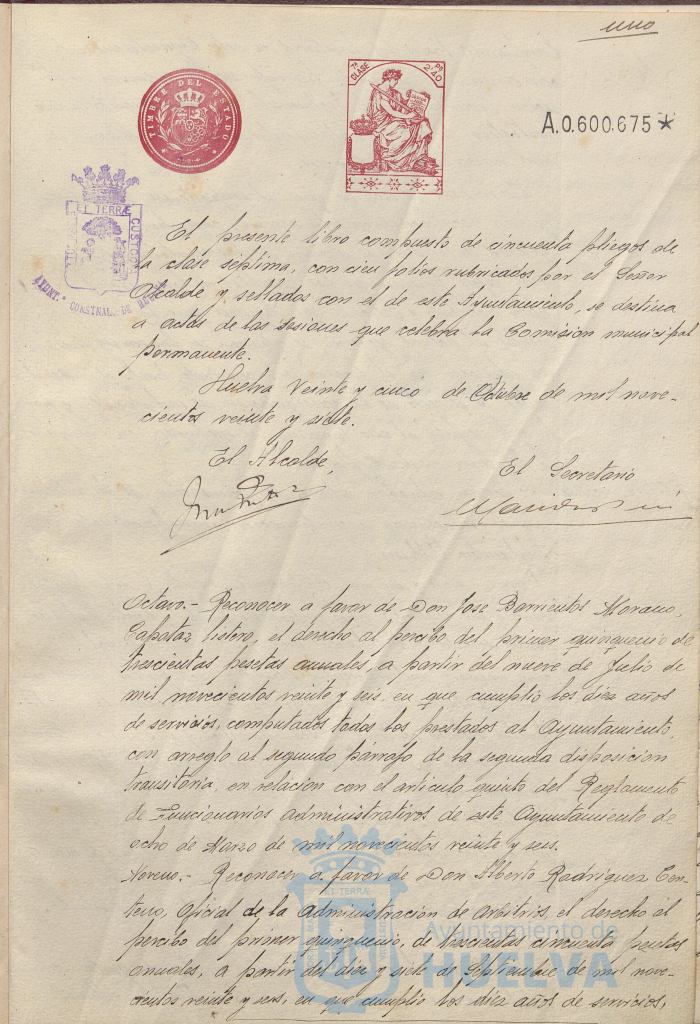 uno
TIMBRE DEL ESTADO
7ª CLASE
2'40
A.0.600.675*
ET TERRÆ
CUSTOS
AYUNT.º CONSTNAL. DE
El presente libro compuesto de cincuenta pliegos de
la clase séptima, con cien folios rubricados por el Señor
Alcalde y sellados con el de este Ayuntamiento, se destina
a actas de las sesiones que celebra la Comision municipal
permanente.
Huelva veinte y cinco de Octubre de mil nove-
cientos veinte y siete.
El Alcalde,
El Secretario
Octavo.- Reconocer a favor de Don Jose Barrientos Morano,
Capataz listero, el derecho al percibo del primer quinquenio de
trescientas pesetas anuales, a partir del nueve de Julio de
mil novecientos veinte y seis, en que cumplio los diez años
de servicios, computados todos los prestados al Ayuntamiento,
con arreglo al segundo párrafo de la segunda disposicion
transitoria, en relacion con el articulo quinto del Reglamento
de Funcionarios administrativos de este Ayuntamiento de
ocho de Marzo de mil novecientos veinte y seis.
Noveno.- Reconocer a favor de Don Alberto Rodriguez Con-
tero, Oficial de la Administración de Arbitrios, el derecho al
percibo del primer quinquenio, de trescientas cincuenta pesetas
anuales, a partir del diez y siete de Septiembre de mil nove-
cientos veinte y seis, en que cumplio los diez años de servicios,
ET TERRÆ
Ayuntamiento de
HUELVA